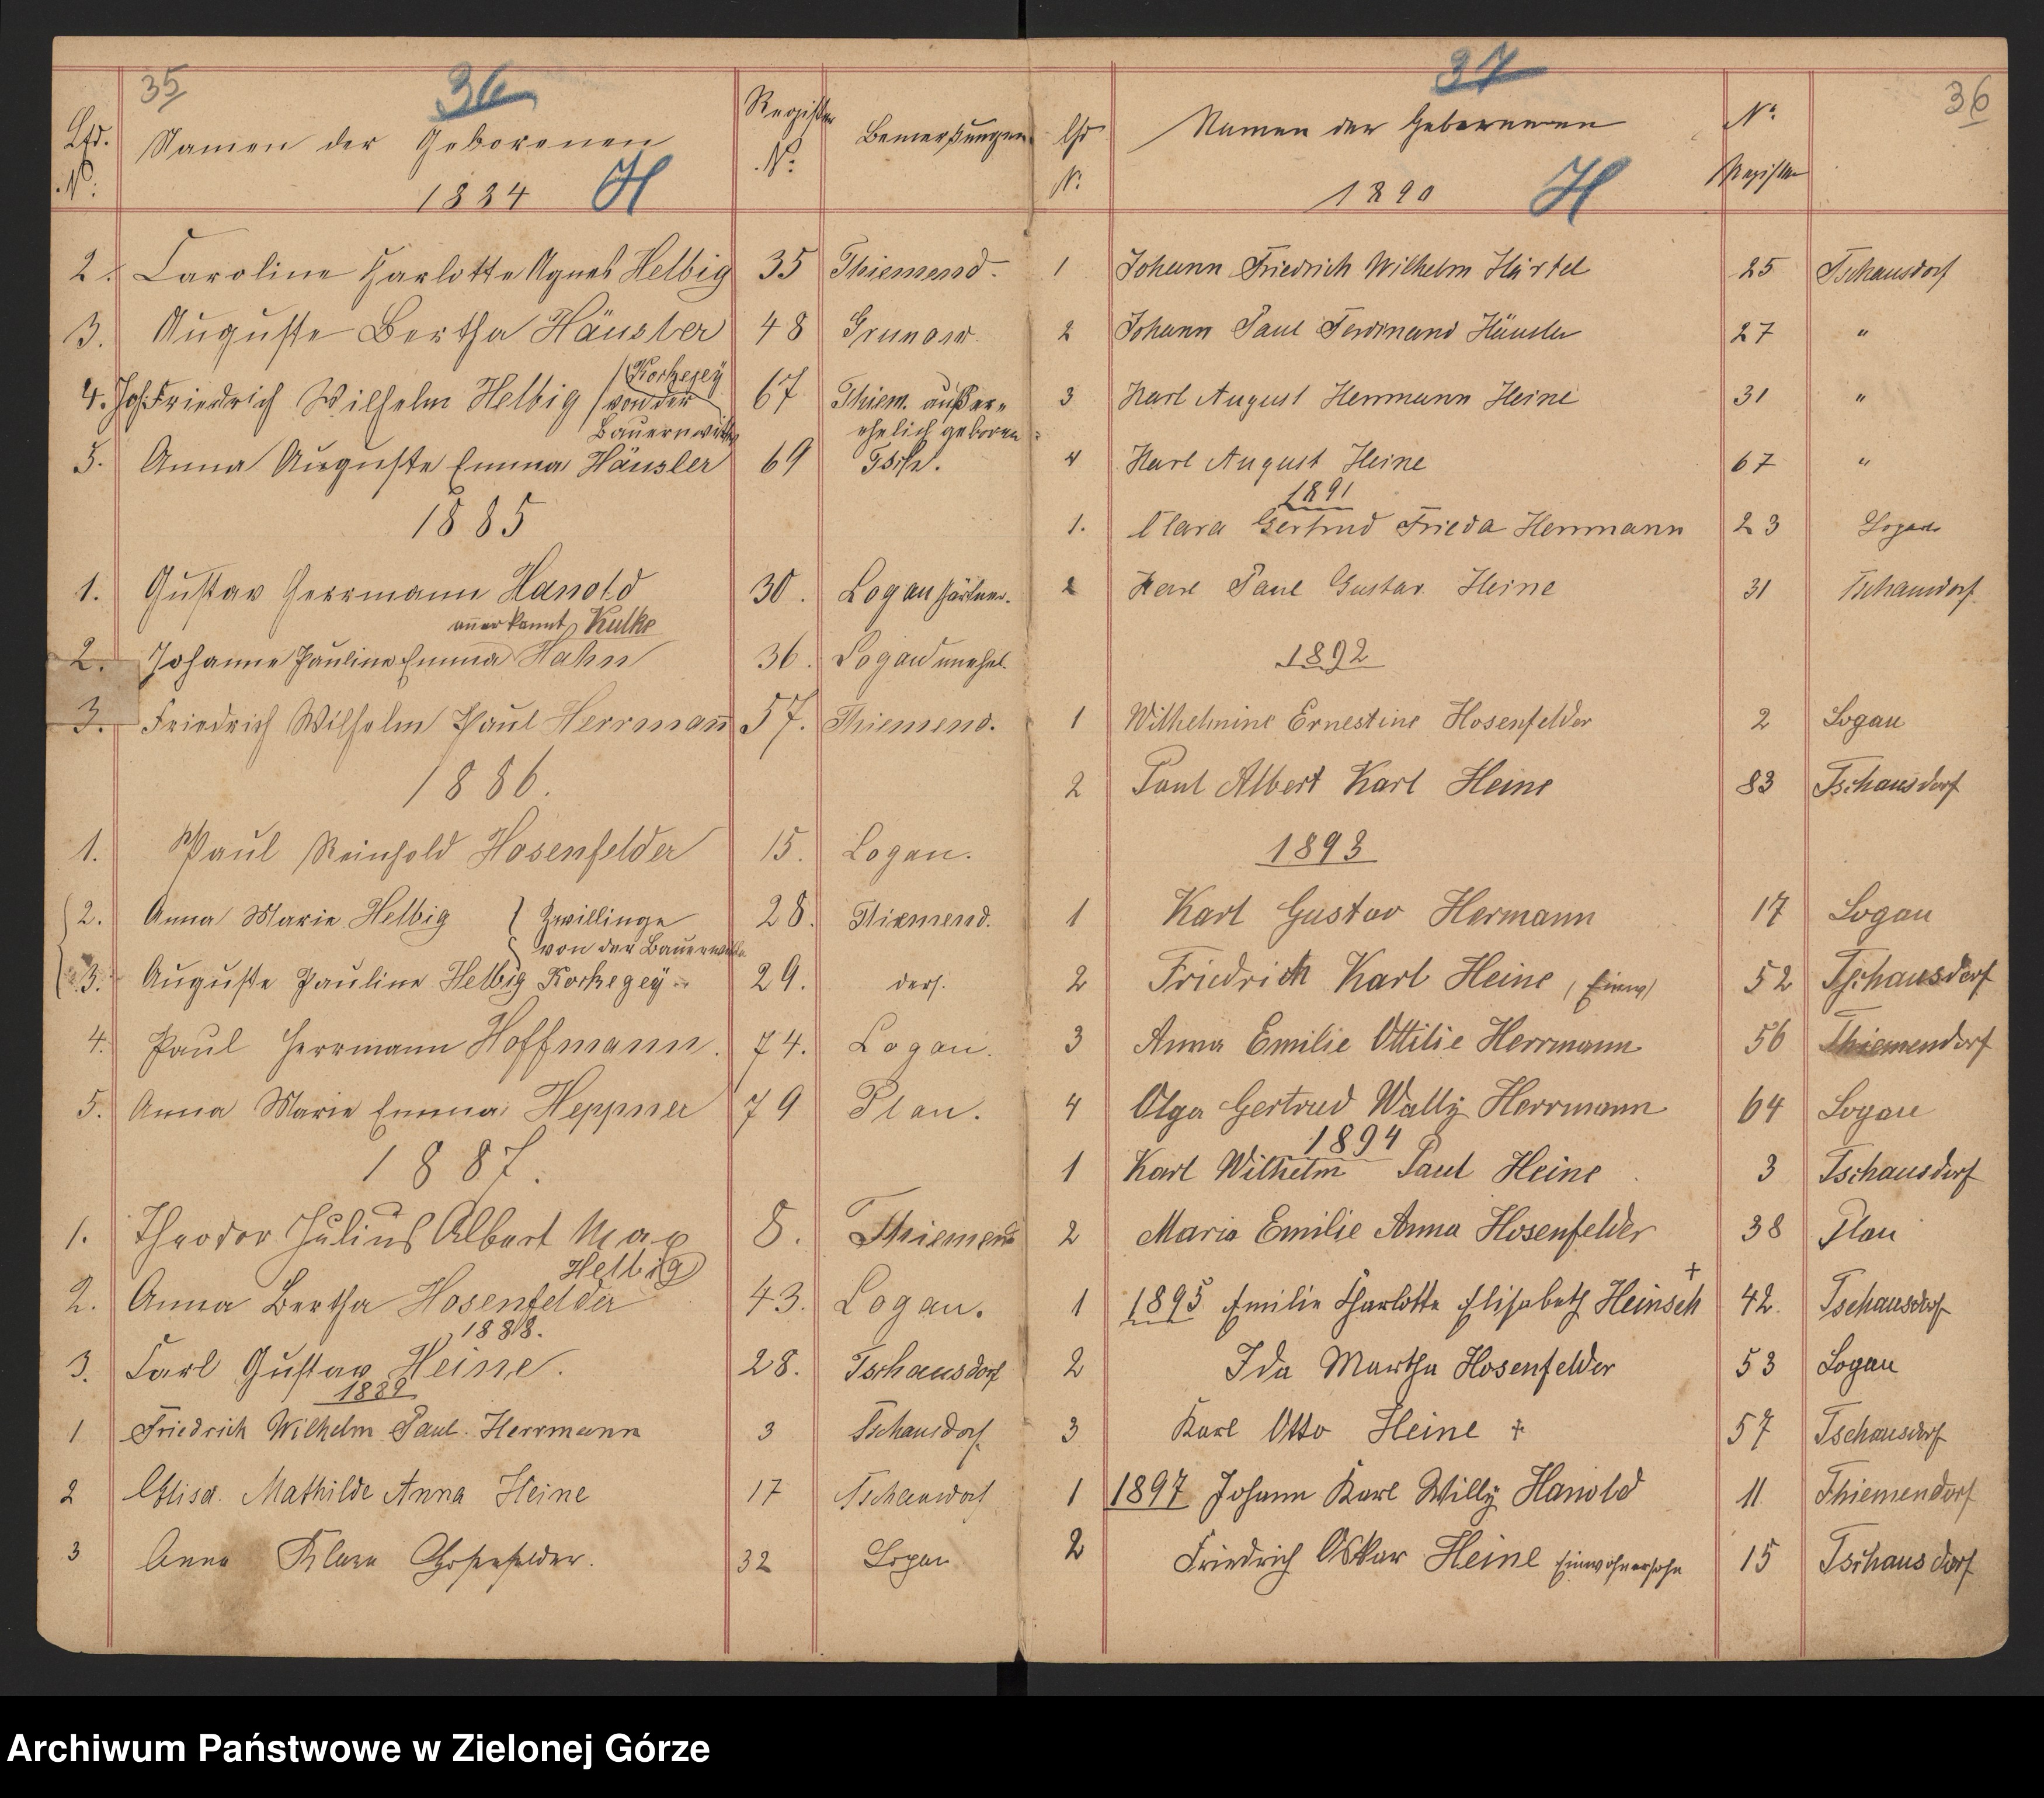 35
36
Lfd. N°.
Namen der Geborenen
Register N°.
Bemerkungen
1884 H
2. Caroline Charlotte Agnes Helbig 35 Thiemend.
3. Auguste Bertha Häusler 48 Grunow.
(Korkegey
4. Joh. Friedrich Wilhelm Helbig von der 67 Thiem. außer=
Bauernwitwe ehelich geboren
5. Anna Auguste Emma Häusler 69 Tsch.
1885
1. Gustav Herrmann Hanold 30. Logau Gärtner.
anerkannt Kulke
2. Johanne Pauline Emma Hahn 36. Logau unehel.
3. Friedrich Wilhelm Paul Herrmañ 57. Thiemend.
1886.
1. Paul Reinhold Hosenfelder 15. Logau.
2. Anna Marie Helbig } Zwillinge 28. Thiemend.
von der Bauernwitwe
3. Auguste Pauline Helbig Korkegey 29. ders.
4. Paul Herrmann Hoffmann. 74. Logau.
5. Anna Marie Emma Heppner 79 Plau.
1887.
1. Theodor Julius Albert Max 8. Thiemend
Helbig
2. Anna Bertha Hosenfelder 43. Logau.
1888.
3. Carl Gustav Heine. 28. Tschausdorf
1889
1 Friedrich Wilhelm Paul Herrmann 3 Tschausdorf
2 Elisa. Mathilde Anna Heine 17 Tschausdorf
3 Anna Klara Hosenfelder. 32 Logau
37
36
Lfd N°.
Namen der Geborenen
N° Register
1890 H
1 Johann Friedrich Wilhelm Härtel 25 Tschausdorf
2 Johann Paul Ferdinand Häusler 27 "
3 Karl August Herrmann Heine 31 "
4 Karl August Heine 67 "
1891
1. Clara Gertrud Frieda Herrmann 23 Logau
2 Karl Paul Gustav Heine 31 Tschausdorf
1892
1 Wilhelmine Ernestine Hosenfelder 2 Logau
2 Paul Albert Karl Heine 83 Tschausdorf
1893
1 Karl Gustav Hermann 17 Logau
2 Friedrich Karl Heine (Einw) 52 Tschausdorf
3 Anna Emilie Ottilie Herrmann 56 Thiemendorf
4 Olga Gertrud Wally Herrmann 64 Logau
1894
1 Karl Wilhelm Paul Heine 3 Tschausdorf
2 Maria Emilie Anna Hosenfelder 38 Plau
1 1895 Emilie Charlotte Elisabeth Heinsch + 42. Tschausdorf
2 Ida Martha Hosenfelder 53 Logau
3 Karl Otto Heine + 57 Tschausdorf
1 1897 Johann Karl Willy Hanold 11 Thiemendorf
2 Friedrich Oskar Heine Einwohnersohn 15 Tschausdorf
Archiwum Państwowe w Zielonej Górze